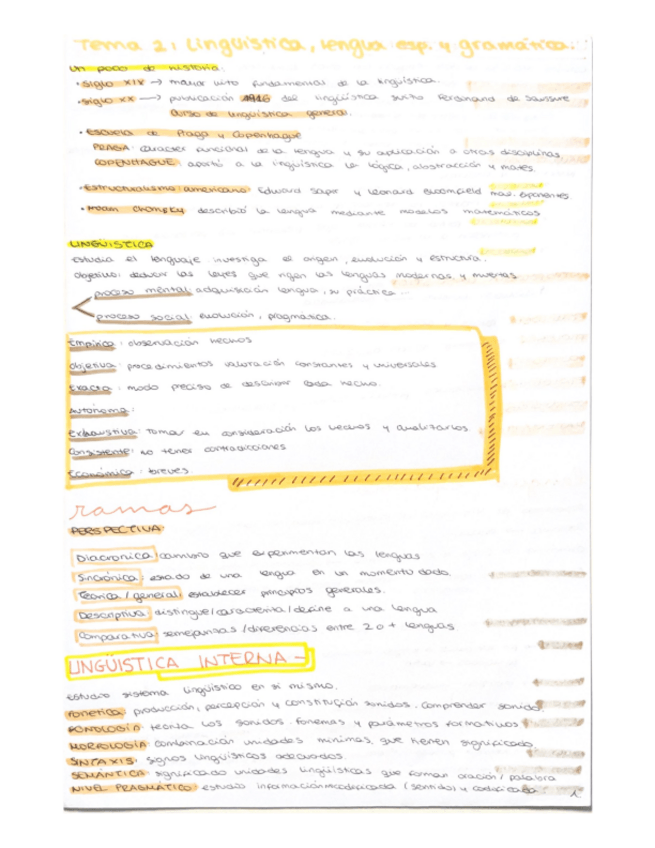 Tema 2: Lingüística, lengua esp. y gramática.
Un poco de historia:
• Siglo XIX → mayor hito fundamental de la lingüística.
• Siglo XX → publicación 1916 del lingüista suizo Ferdinand de Saussure
Curso de lingüística general.
• Escuela de Praga y Copenhague
PRAGA: carácter funcional de la lengua y su aplicación a otras disciplinas
COPENHAGUE: aportó a la lingüística la lógica, abstracción y mates.
• Estructuralismo americano: Edward Sapir y Leonard Bloomfield max. exponentes
• Noam Chompky describió la lengua mediante modelos matemáticos
LINGÜÍSTICA
estudia el lenguaje investiga el origen, evolución y estructura.
Objetivo: deducir las leyes que rigen las lenguas modernas y muertas
proceso mental: adquisición lengua, su práctica...
proceso social: evolución, pragmática.
Empírica: observación hechos
Objetiva: procedimientos valoración constantes y universales
Exacta: modo preciso de describir cada hecho.
Autónoma:
Exhaustiva: tomar en consideración los hechos y analizarlos
Consistente: no tener contradicciones
Económica: breves
ramas
PERSPECTIVA:
Diacrónica: cambio que experimentan las lenguas
Sincrónica: estado de una lengua en un momento dado.
Teórica/general: establecer principios generales.
Descriptiva: distingue/caracteriza/define a una lengua
Comparativa: semejanzas/diferencias entre 2 o + lenguas
LINGÜÍSTICA INTERNA
estudio sistema lingüístico en sí mismo.
FONÉTICA: producción, percepción y constitución sonidos. comprender sonido.
FONOLOGÍA: teoría los sonidos. fonemas y parámetros formativos
MORFOLOGÍA: combinación unidades mínimas que tienen significado
SINTAXIS: signos lingüísticos adecuados.
SEMÁNTICA: significado unidades lingüísticas que forman oración/palabra
NIVEL PRAGMÁTICO: estudio información (sentido) y codificada
1